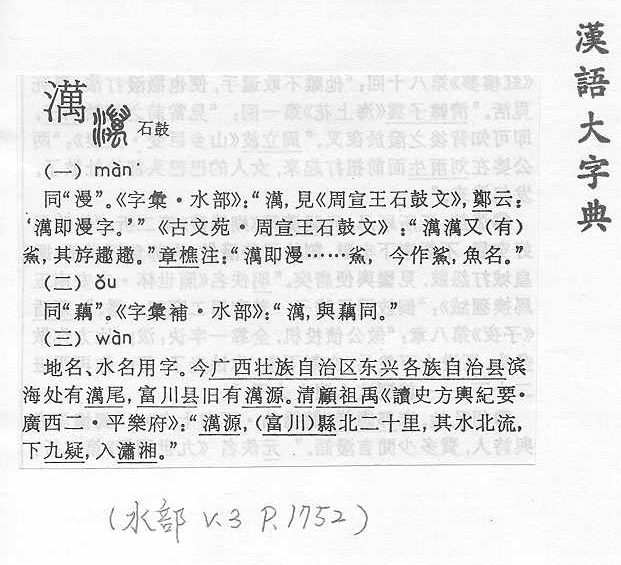 漢語大字典
澫
石鼓
(一) màn
同“漫”。《字彙·水部》：“澫，見《周宣王石鼓文》，鄭云：
‘澫即漫字。’”《古文苑·周宣王石鼓文》：“澫澫又(有)
其斿趣趣。”章樵注：“澫即漫……今作鯊，魚名。”
(二) ǒu
同“藕”。《字彙補·水部》：“澫，與藕同。”
(三) wàn
地名、水名用字。今广西壮族自治区东兴各族自治县滨
海处有澫尾，富川县旧有澫源。清顧祖禹《讀史方輿紀要·
廣西二·平樂府》：“澫源，(富川)縣北二十里，其水北流，
下九疑，入瀟湘。”
(水部 V.3 P.1752)